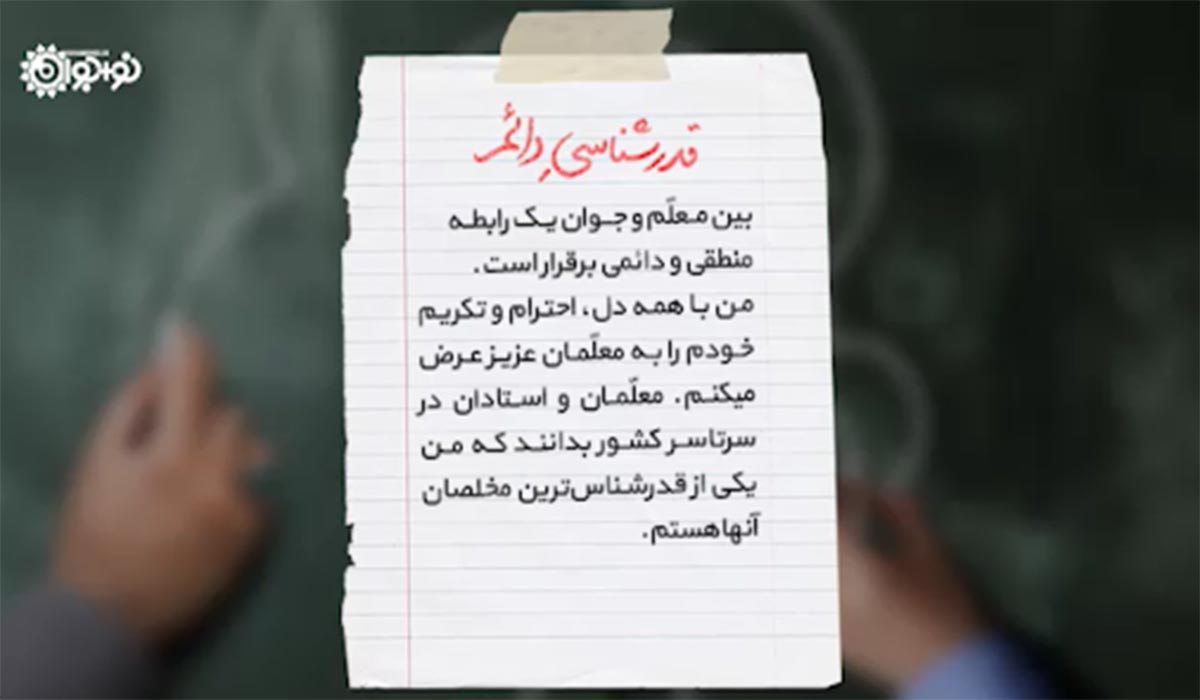 نوجوان
قدرشناسیِ دائم
بین معلّم و جوان یک رابطه
منطقی و دائمی برقرار است.
من با همه دل، احترام و تکریم
خودم را به معلّمان عزیز عرض
میکنم. معلّمان و استادان در
سرتاسر کشور بدانند که من
یکی از قدرشناس‌ترین مخلصان
آنها هستم.